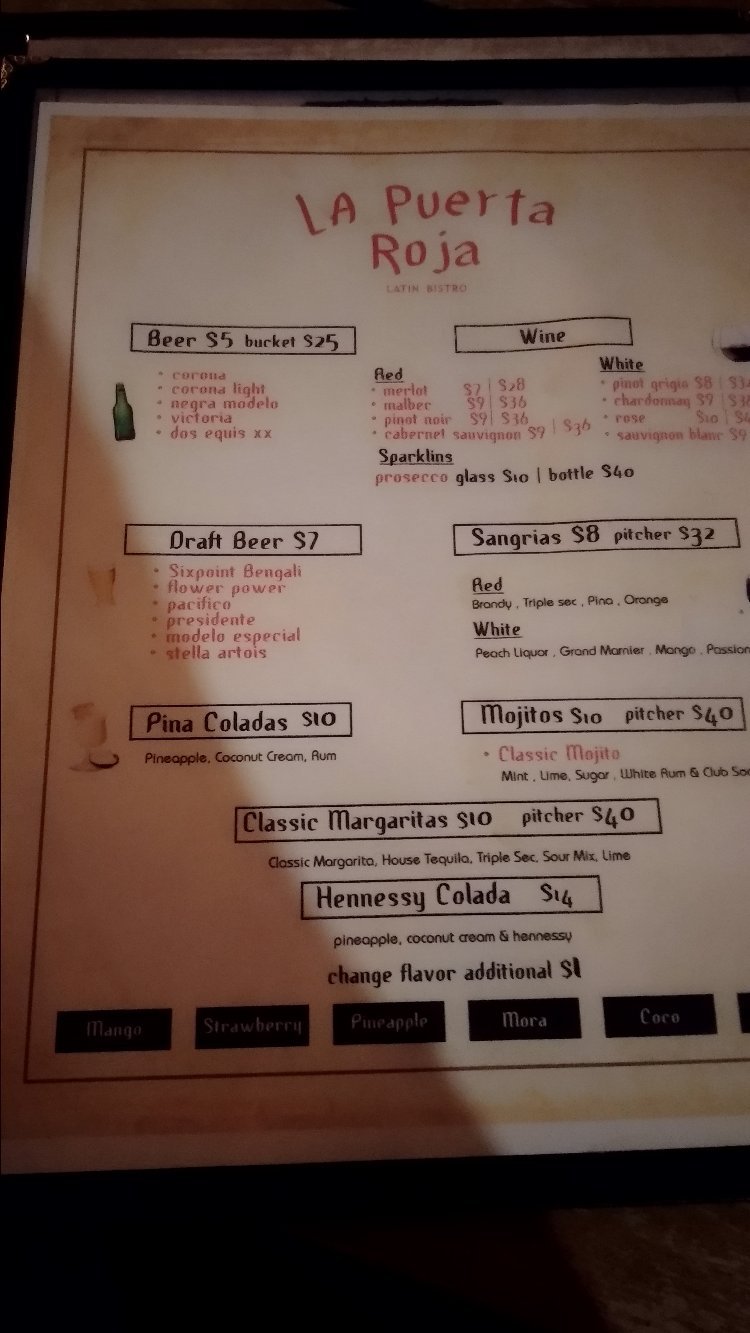 LA Puerta
Roja
LATIN BISTRO
Beer $5 bucket $25
• corona
• corona light
• negra modelo
• victoria
• dos equis xx
Wine
Red
• merlot $7 | $28
• malber $9 | $36
• pinot noir $9 | $36
• cabernet sauvignon $9 | $36
White
• pinot grigio $8 |
• chardonnay $9 |
• rose $10 |
• sauvignon blanc $9
Sparklins
prosecco glass $10 | bottle $40
Draft Beer $7
• Sixpoint Bengali
• flower power
• pacifico
• presidente
• modelo especial
• stella artois
Sangrias $8 pitcher $32
Red
Brandy , Triple sec , Pina , Orange
White
Peach Liquor , Grand Marnier , Mango , Passion
Pina Coladas $10
Pineapple, Coconut Cream, Rum
Mojitos $10 pitcher $40
• Classic Mojito
Mint , Lime, Sugar , White Rum & Club
Classic Margaritas $10 pitcher $40
Classic Margarita, House Tequila, Triple Sec, Sour Mix, Lime
Hennessy Colada $14
pineapple, coconut cream & hennessy
change flavor additional $1
Mango Strawberry Pineapple Mora Coco